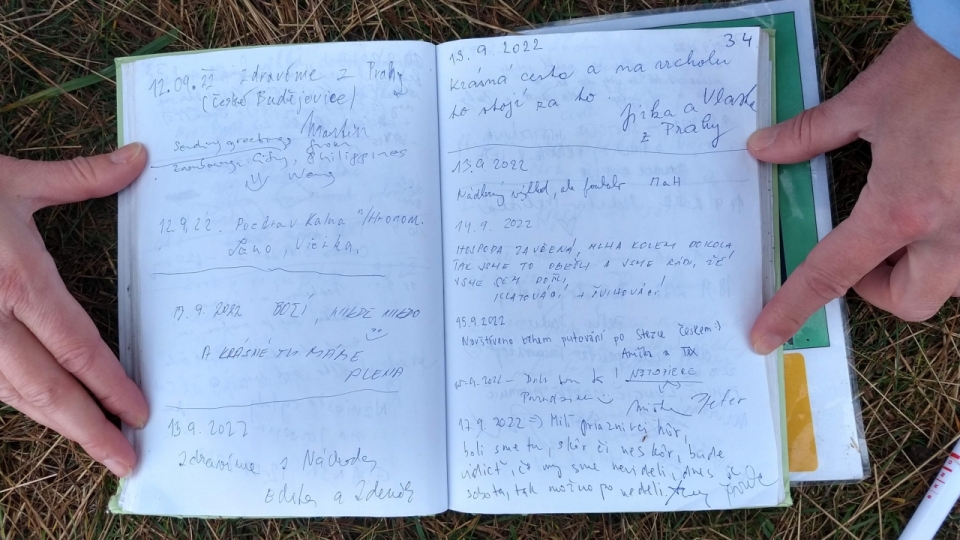 12.09.22 Zdravíme z Prahy
(České Budějovice)
Martin
sending greetings from
City, Philippines
Wang
12.9.22. Pozdrav Kalná n/Hronom.
Jano, Vierka,
13.9.2022 BOŽÍ, NIKDE NIKDO
A KRÁSNĚ TU MÁTE
PLENA
13.9.2022
Zdravíme z Náchoda
a Zdeněk
34
13.9.2022
Krásná cesta a na vrcholu
to stojí za to.
Jirka a Vlasta
z Prahy
13.9.2022
Nádherný výhled, ale MaH
14.9. 2022
HOSPODA ZAVŘENÁ, MLHA KOLEM DOKOLA
TAK JSME TO OBEŠLI A JSME RÁDI, ŽE
JSME SEM DOŠLI,
KLATOVÁCI A ŠVIHOVÁCI
15.9.2022
Navštíveno během putování po Stezce Českem:)
Anička a
15.9.2022 - Došli jsme k! NETOPIEREC
Peter
17.9.2022 => Milí priaznivci hôr,
boli sme tu, skôr či neskôr, bude
vidieť, čo my sme nevideli, dnes je
sobota, tak možno po nedeli.